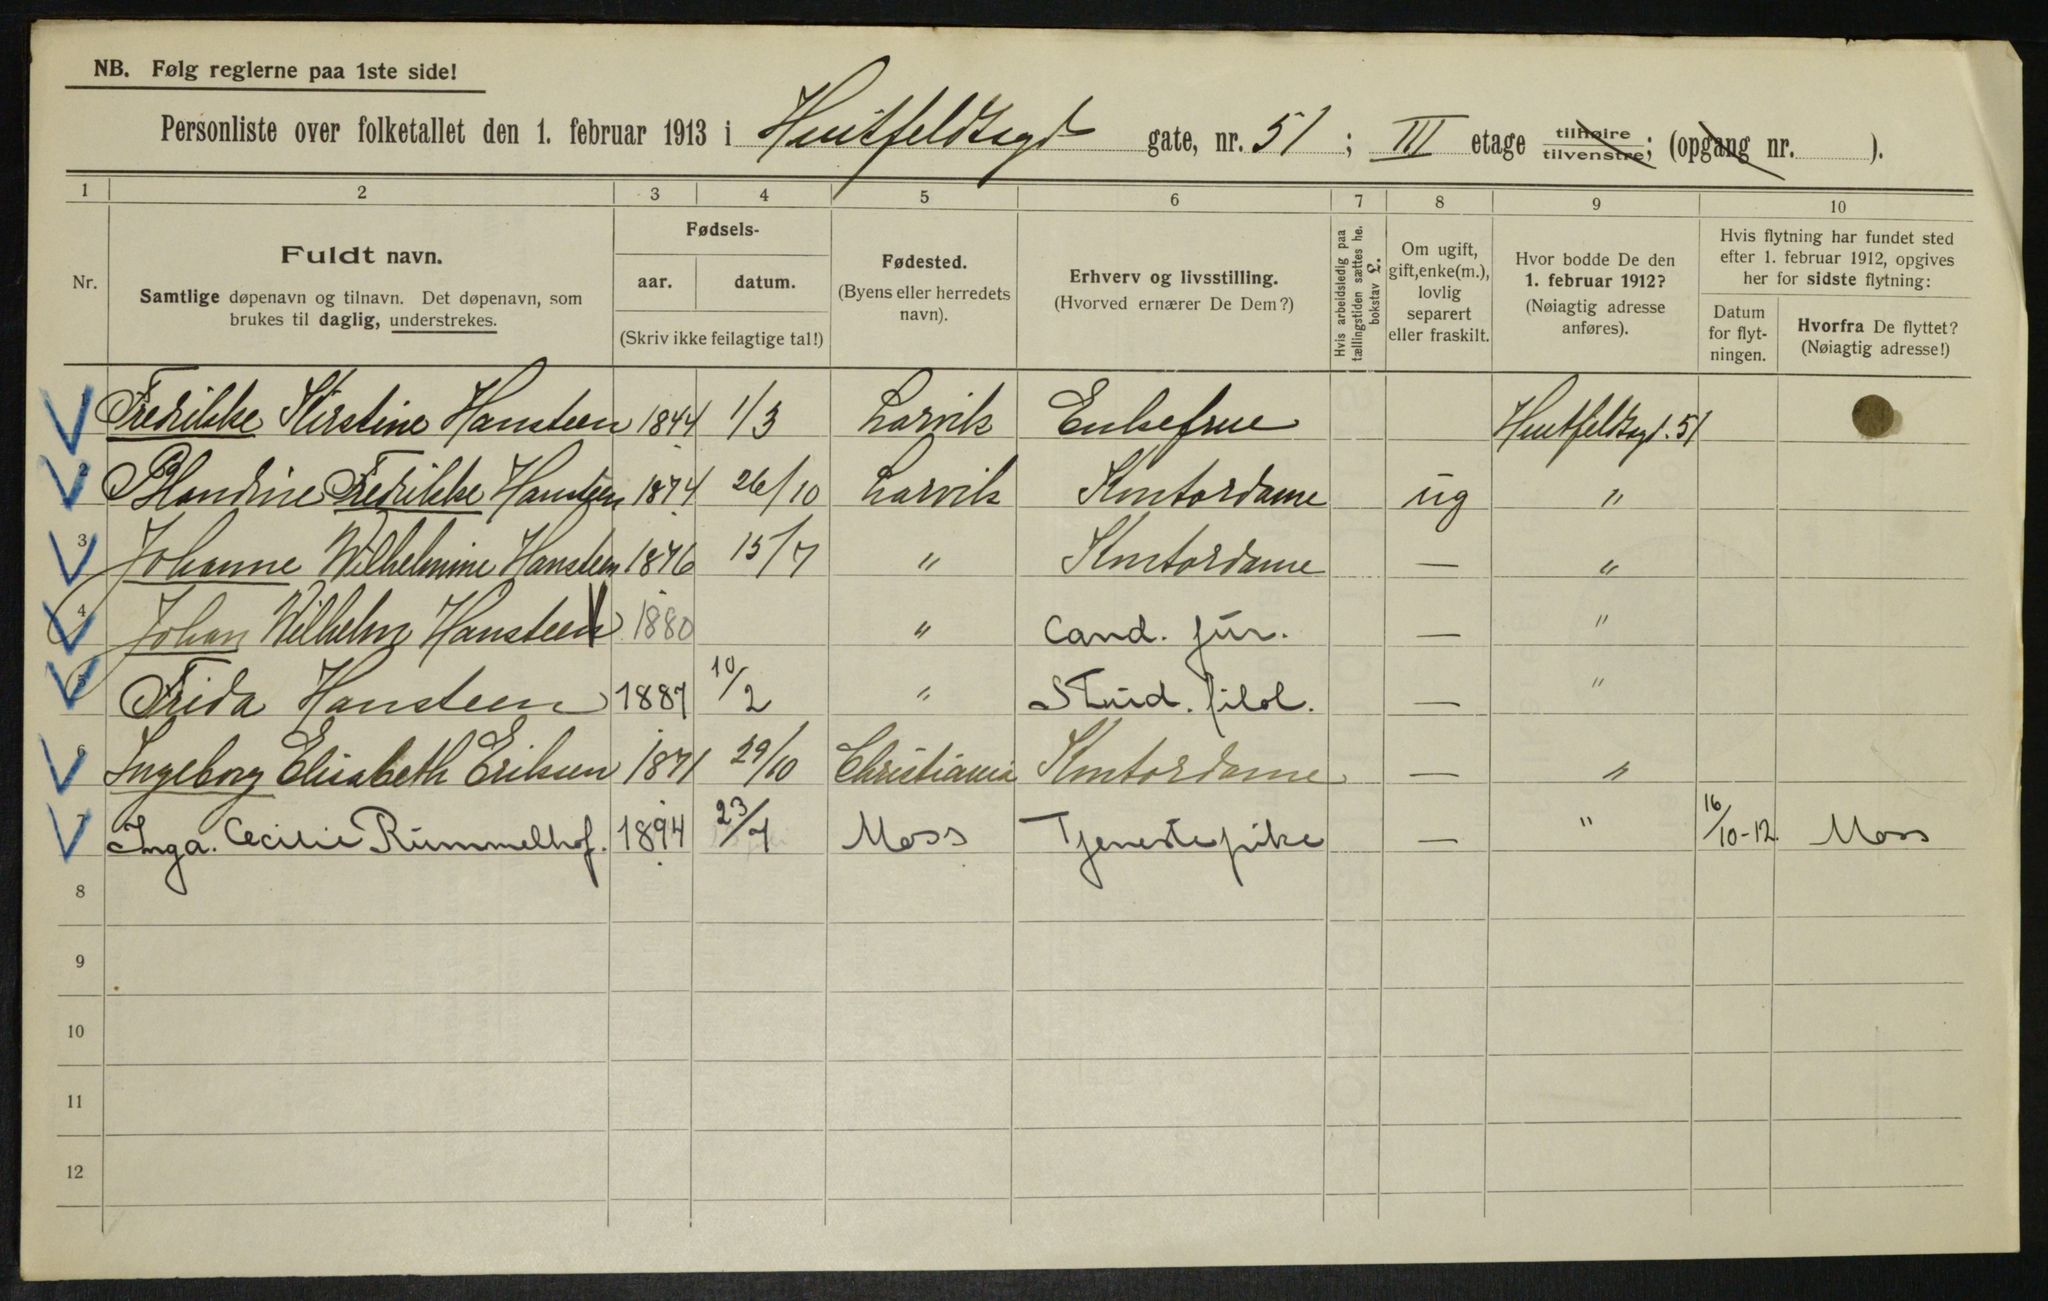 NB. Følg reglerne paa 1ste side!
Personliste over folketallet den 1. februar 1913 i Huitfeldtsgd gate, nr. 51 ; III etage tilhøire tilvenstre; (opgang nr. ).
1 2 3 4 5 6 7 8 9 10
Nr.
Fuldt navn.
Samtlige døpenavn og tilnavn. Det døpenavn, som
brukes til daglig, understrekes.
Fødsels-
aar. datum.
(Skriv ikke feilagtige tal!)
Fødested.
(Byens eller herredets
navn).
Erhverv og livsstilling.
(Hvorved ernærer De Dem?)
Hvis arbeidsledig paa
tællingstiden sættes he.
bokstav L.
Om ugift,
gift, enke(m.),
lovlig
separert
eller fraskilt.
Hvor bodde De den
1. februar 1912?
(Nøiagtig adresse
anføres).
Hvis flytning har fundet sted
efter 1. februar 1912, opgives
her for sidste flytning:
Datum
for flyt-
ningen.
Hvorfra De flyttet?
(Nøiagtig adresse!)
Fredrikke Kirstine Hansteen 1844 1/3 Larvik Enkefrue Huitfeldtsgd. 51
2 Blandine Fredrikke Hansteen 1874 26/10 Larvik Kontordame ug "
3 Johanne Wilhelmine Hansteen 1876 15/7 " Kontordame — "
4 Johan Wilhelm Hansteen 1880 " Cand. jur. — "
5 Frida Hansteen 1887 10/2 " Stud. filol. — "
6 Ingeborg Elisabeth Eriksen 1871 29/10 Christiania Kontordame — "
7 Inga. Cecilie Rummelhof. 1894 23/7 Moss Tjenestepike — " 16/10-12. Moss
8
9
10
11
12